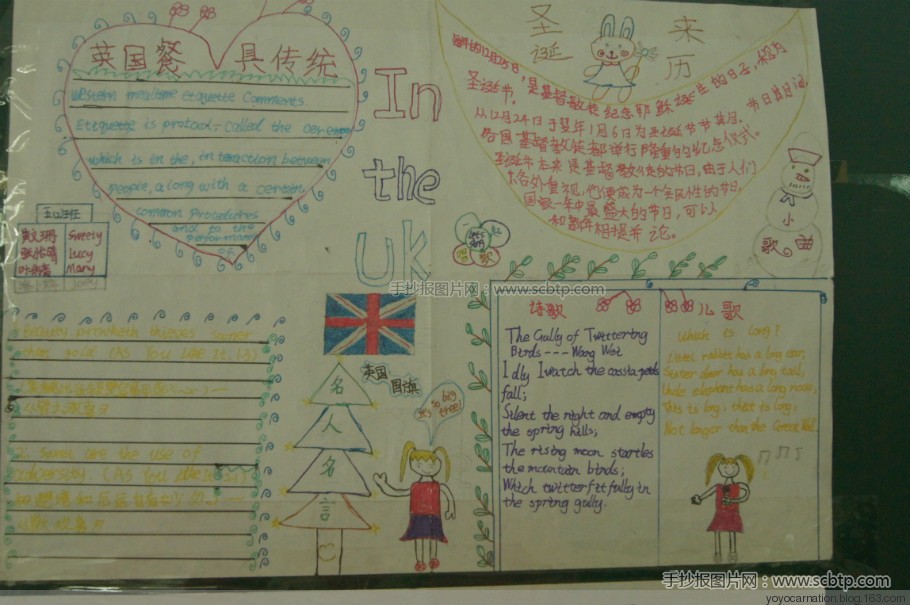 英国餐具传统
Western mealtime etiquette Comments
Etiquette is protocol, called the
which is in the, in teraction between
people, along with a certain
common procedures
and to the
In
the
UK
圣诞
来历
12月25日,是基督教徒纪念耶稣诞生的日子,称为
圣诞节。
从12月24日于翌年1月6日为圣诞节节期。节日期间,
各国基督教徒都举行隆重的纪念仪式。
圣诞节本来是基督教徒的节日,由于人们
格外重视,他便成为一个全民性的节日,
国家一年中最盛大的节日,可以
和新年相提并论。
小
歌曲
Sweety
Lucy
Mary
手抄报图片网:www.scbtp.com
Beauty provoketh thieves sooner
than gold (As You Like It, 1.3)
2. Sweet are the use of
adversity (As You Like
英国
国旗
名
人
名
言
诗歌
The Gully of Twittering
Birds --- Wang Wei
Idly I watch the cassia petals
fall;
Silent the night and empty
the spring hills;
The rising moon startles
the mountain birds;
Which twitter fitfully in
the spring gully.
儿歌
Which is long?
Little rabbit has a long ear,
has a long tail,
Uncle elephant has a long nose,
This is long, that is long,
Not longer than the Great Wall.
手抄报图片网:www.scbtp.com
yoyocarnation.blog.163.com